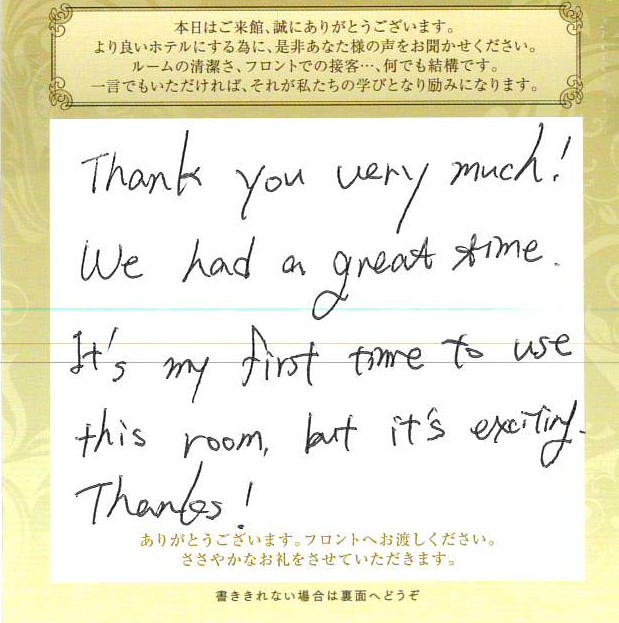 本日はご来館、誠にありがとうございます。
より良いホテルにする為に、是非あなた様の声をお聞かせください。
ルームの清潔さ、フロントでの接客…、何でも結構です。
一言でもいただければ、それが私たちの学びとなり励みになります。
Thank you very much!
We had a great time.
It's my first time to use
this room, but it's exciting.
Thanks!
ありがとうございます。フロントへお渡しください。
ささやかなお礼をさせていただきます。
書ききれない場合は裏面へどうぞ